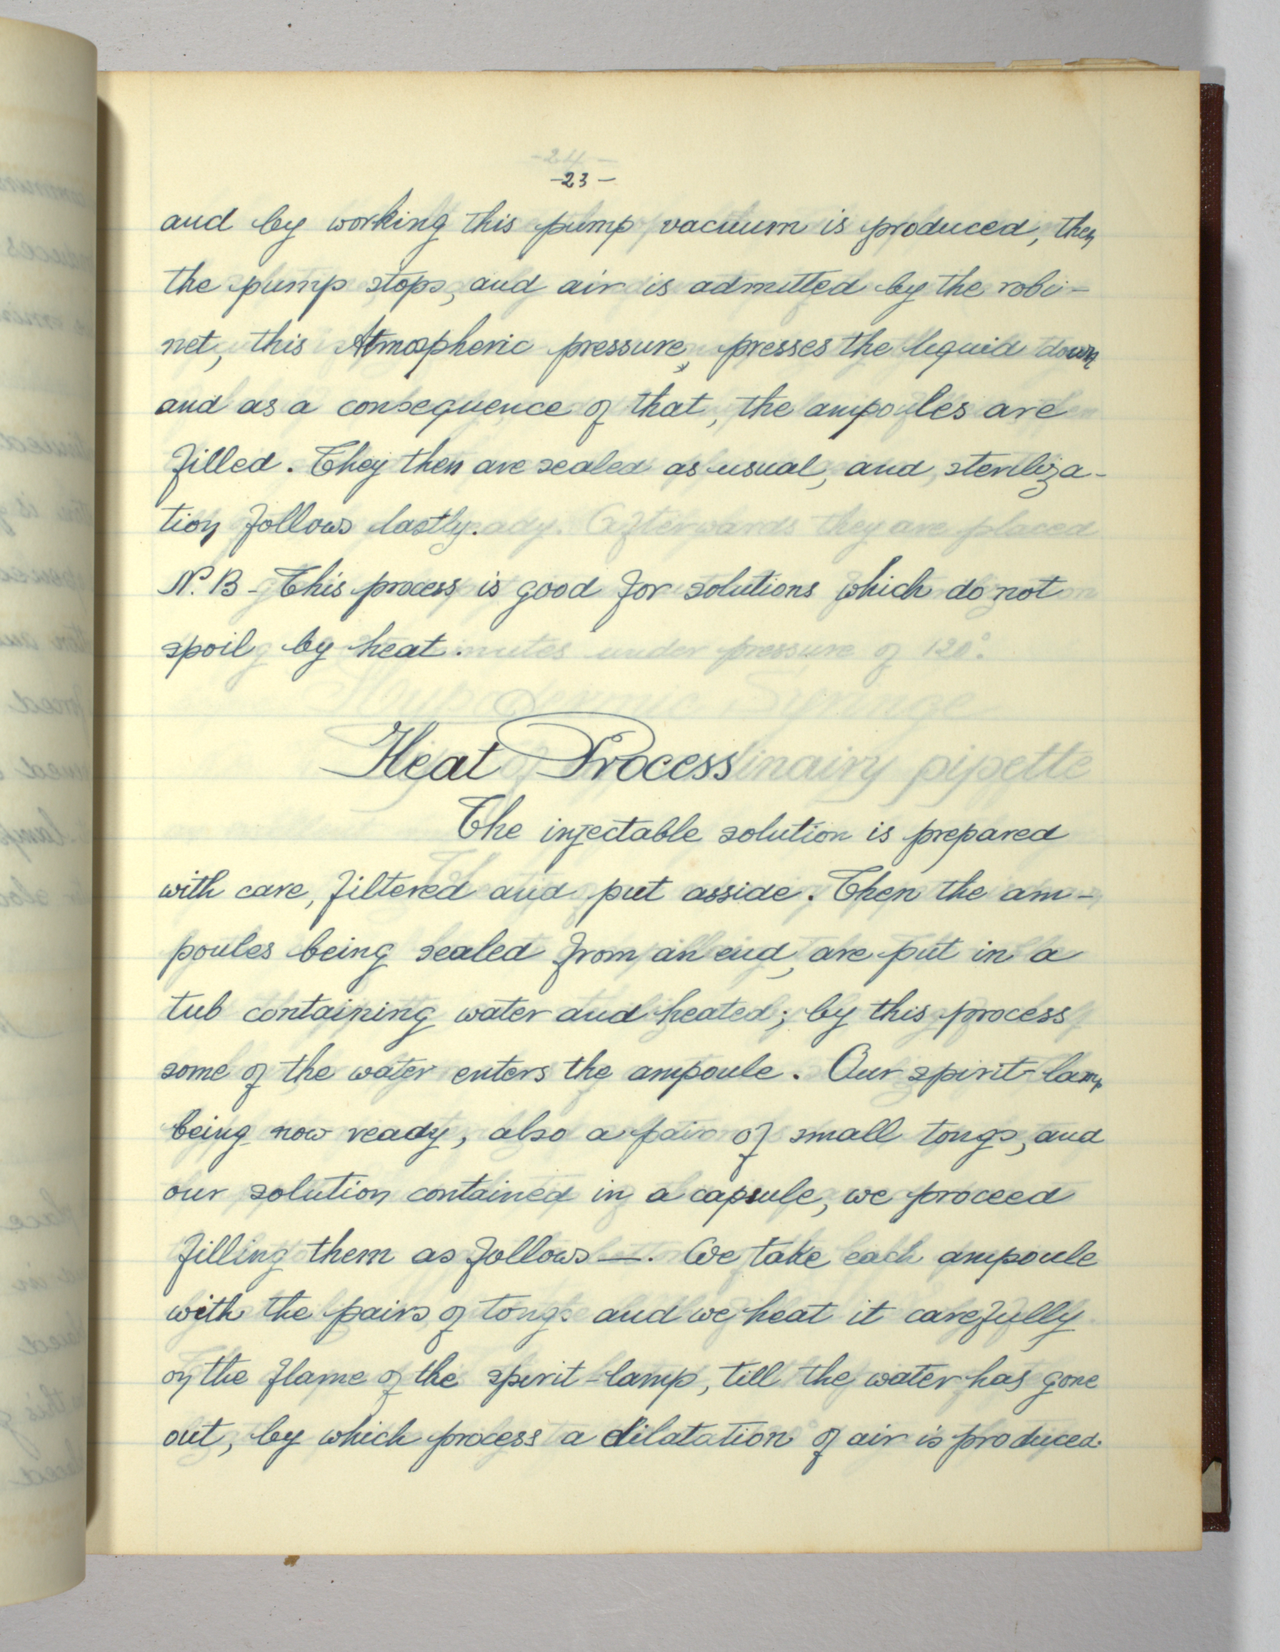 -23-
and by working this pump vacuum is produced, then
the pump stops, and air is admitted by the robi-
net, this Atmospheric pressure, presses the liquid down
and as a consequence of that, the ampoules are
filled. They then are sealed as usual, and, steriliza-
tion follows lastly.
N.B - This process is good for solutions which do not
spoil by heat.
Heat Process
The injectable solution is prepared
with care, filtered and put asside. Then the am-
poules being sealed from an end, are put in a
tub containing water and heated; by this process
some of the water enters the ampoule. Our spirit-lamp
being now ready, also a pair of small tongs, and
our solution contained in a capsule, we proceed
filling them as follows —. We take each ampoule
with the pairs of tongs and we heat it carefully
on the flame of the spirit-lamp, till the water has gone
out, by which process a dilatation of air is produced.